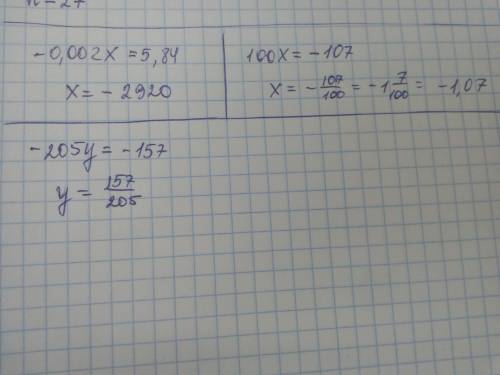 -0,002x = 5,84
x = - 2920
100x = -107
x = - 107/100 = -1 7/100 = -1,07
-205y = -157
y = 157/205